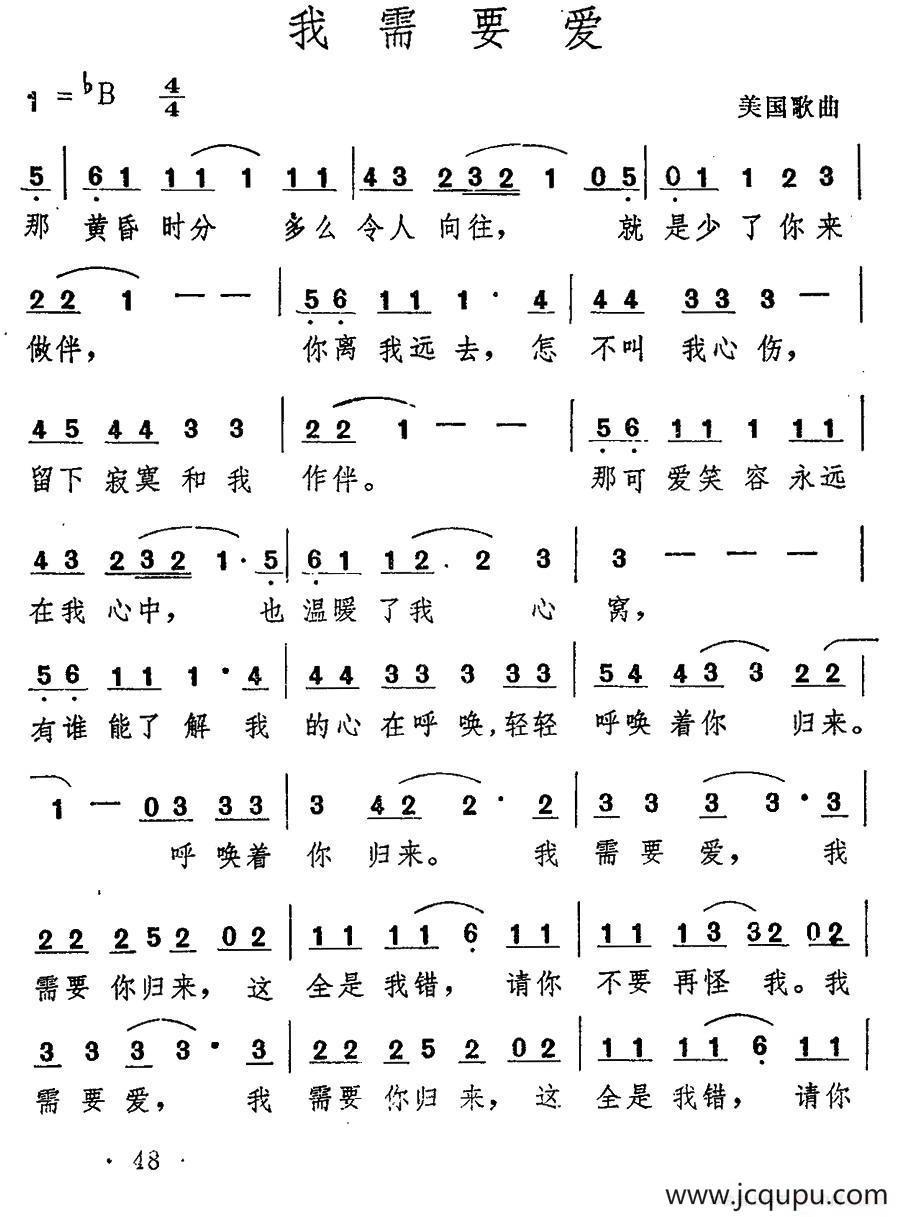 我需要爱
1=♭B 4/4 美国歌曲
5 | 61 11 1 11 | 43 232 1 05 | 01 1 2 3 |
那 黄昏 时分 多么 令人 向往， 就 是少 了 你 来
22 1 — — | 56 11 1· 4 | 44 33 3 — |
做伴， 你离 我远 去，怎 不叫 我心 伤，
45 44 3 3 | 22 1 — — | 56 11 1 11 |
留下 寂寞 和 我 作伴。 那可 爱笑 容 永远
43 232 1· 5 | 61 12· 2 3 | 3 — — — |
在我 心中， 也 温暖 了我 心 窝，
56 11 1· 4 | 44 33 3 33 | 54 43 3 22 |
有谁 能了 解 我 的心 在呼 唤，轻轻 呼唤 着你 归来。
1 — 03 33 | 3 42 2· 2 | 3 3 3 3· 3 |
呼 唤着 你 归来。 我 需 要 爱， 我
22 252 02 | 11 11 6 11 | 11 13 32 02 |
需要 你归来， 这 全是 我错， 请你 不要 再怪 我。我
3 3 3 3· 3 | 22 25 2 02 | 11 11 6 11 |
需 要 爱， 我 需要 你归 来， 这 全是 我错， 请你
· 48 ·
www.jcqupu.com